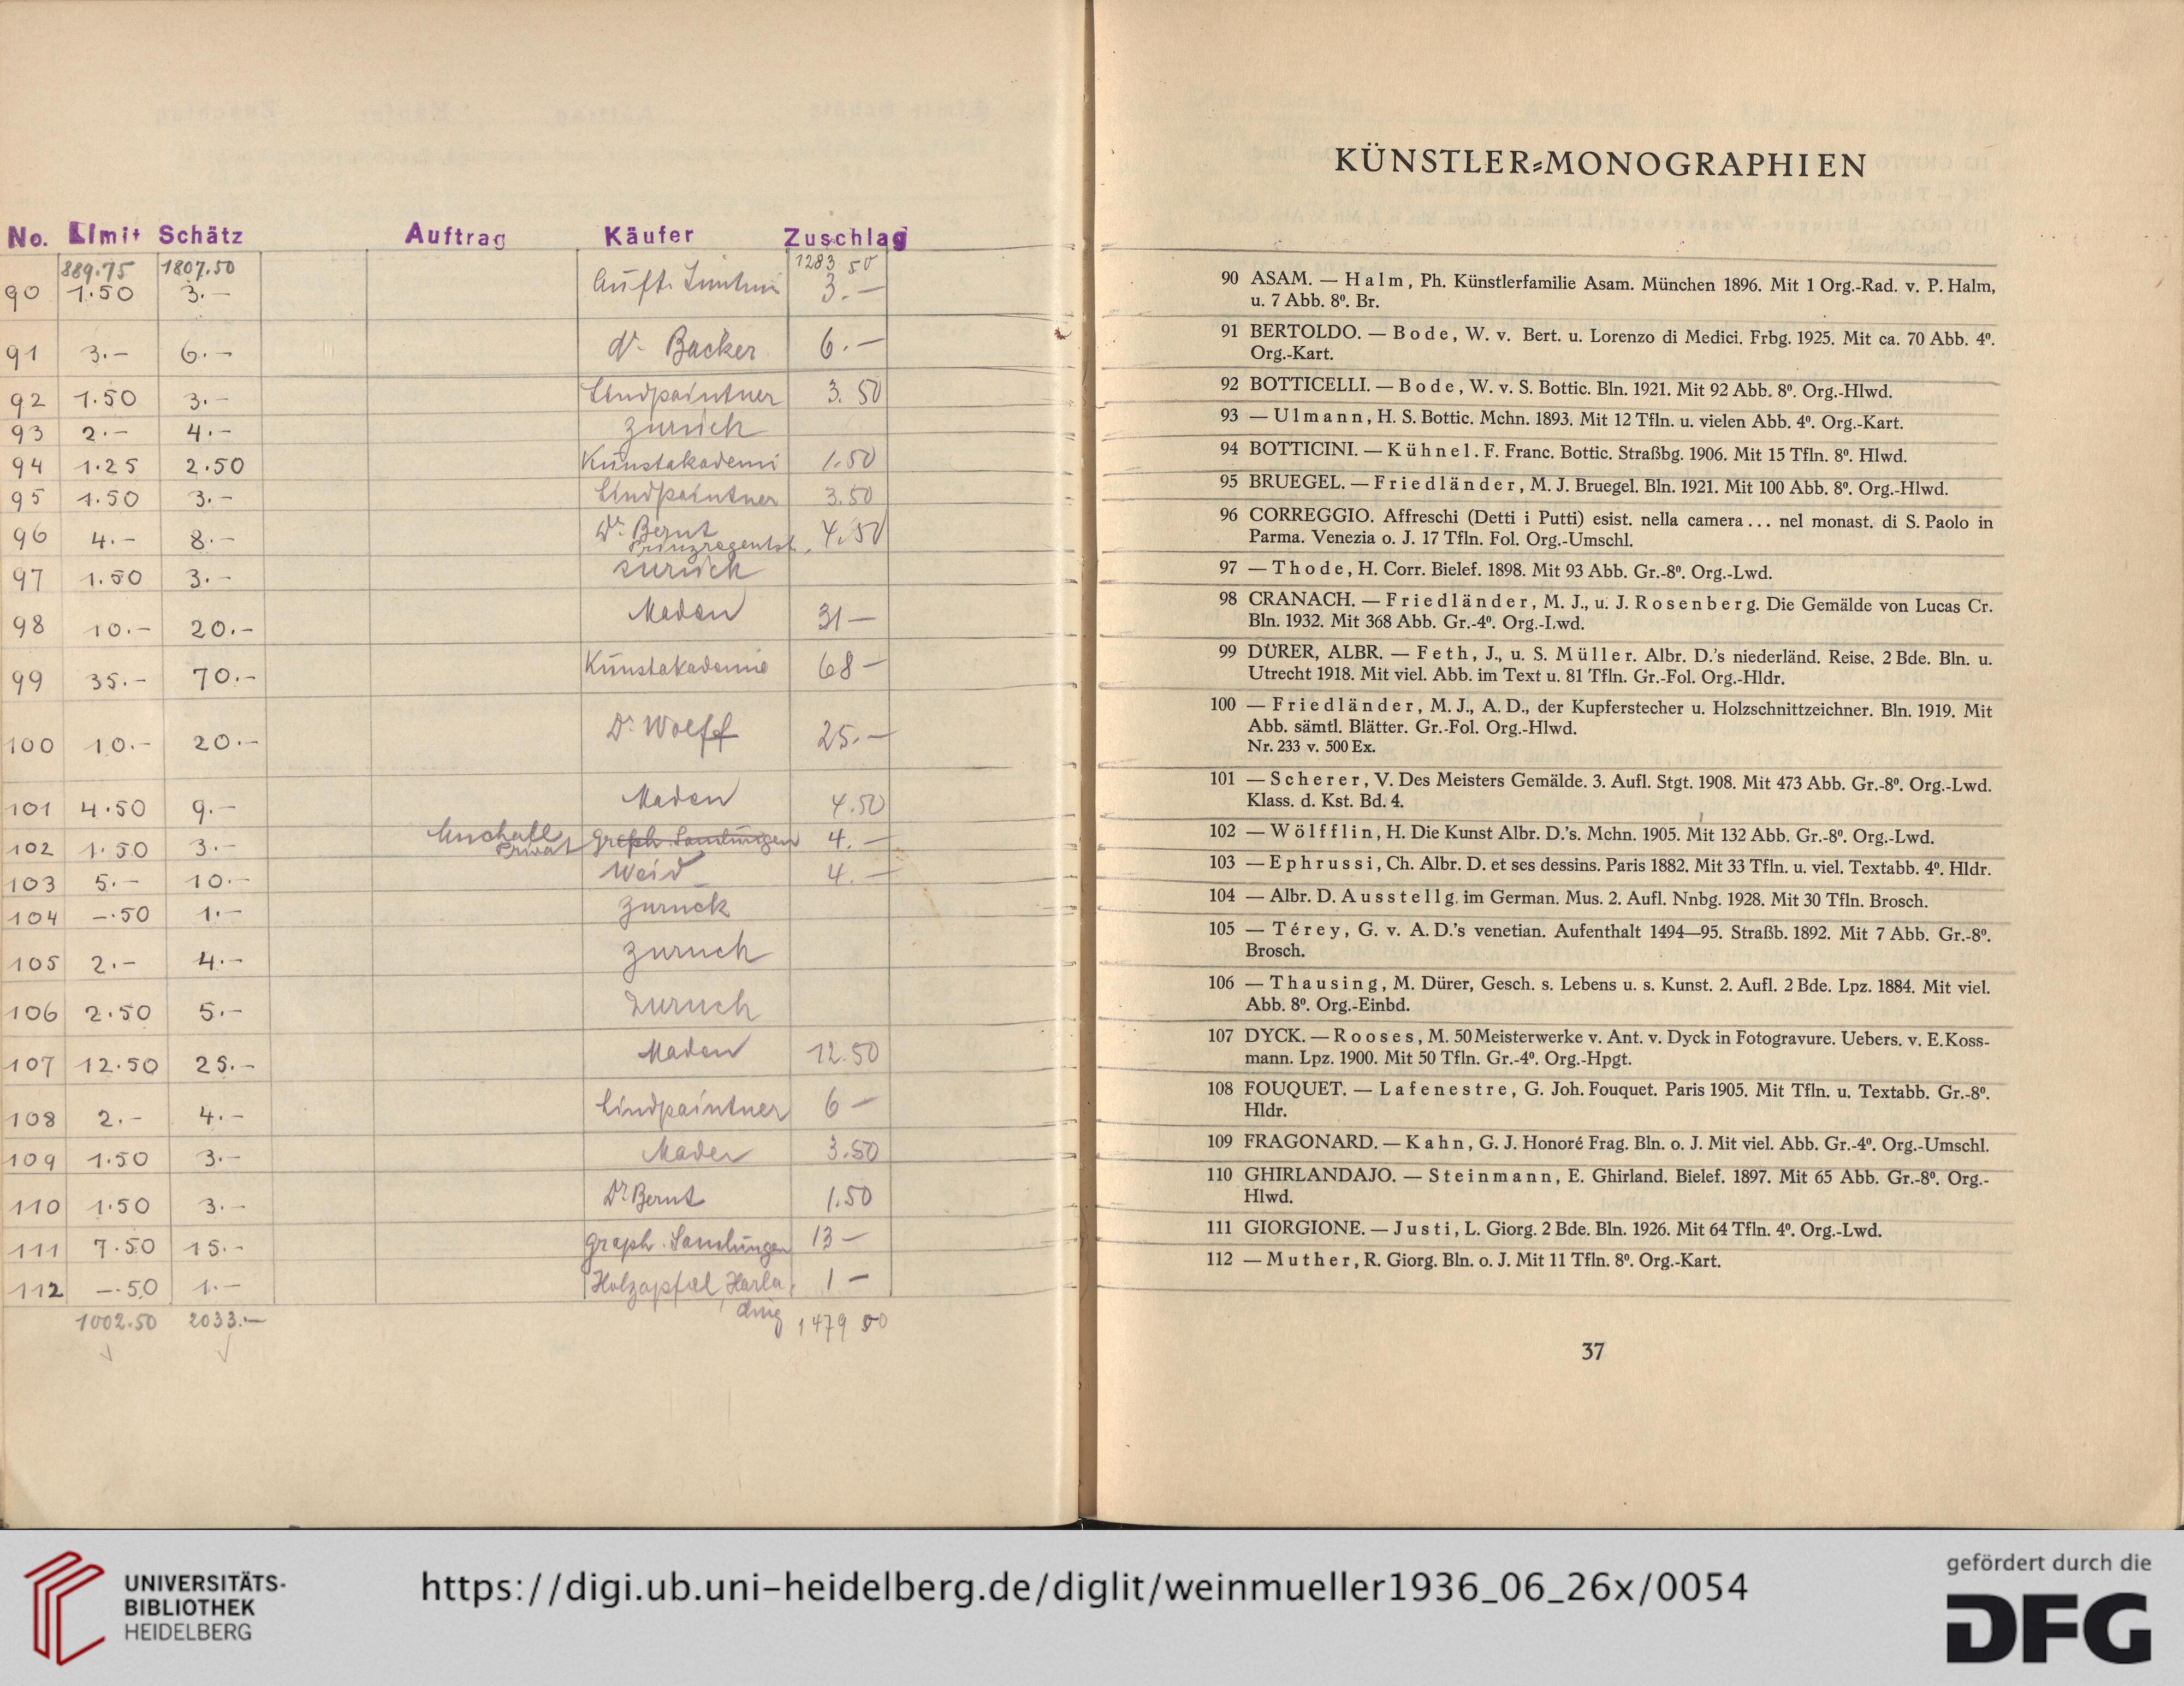 No. Limit Schätz Auftrag Käufer Zuschlag
889.75 1807.50 1283 50
90 1.50 3.– Auftr. 3.–
91 3.– 6.– Dr. Backer 6.–
92 1.50 3.– Lindpaintner 3.50
93 2.– 4.– zurück
94 1.25 2.50 Kunstakademi 1.50
95 1.50 3.– Lindpaintner 3.50
96 4.– 8.– Dr. Bernt 4.50
Prinzregentst.
97 1.50 3.– zurück
98 10.– 20.– 31–
99 35.– 70.– Kunstakademie 68–
100 10.– 20.– Dr. Wolff 25.–
101 4.50 9.– 4.50
102 1.50 3.– Privat Graph. Samlungen 4.–
103 5.– 10.– Weid 4.–
104 –.50 1.– zurück
105 2.– 4.– zurück
106 2.50 5.– zurück
107 12.50 25.– 12.50
108 2.– 4.– Lindpaintner 6–
109 1.50 3.– Mader 3.50
110 1.50 3.– Dr. Bernt 1.50
111 7.50 15.– Graph. Samlungen 13–
112 –.50 1.– Holzapfel, Harla, 1–
ding
1002.50 2033.– 1479 00
KÜNSTLER-MONOGRAPHIEN
90 ASAM. — Halm, Ph. Künstlerfamilie Asam. München 1896. Mit 1 Org.-Rad. v. P. Halm,
u. 7 Abb. 8º. Br.
91 BERTOLDO. — Bode, W. v. Bert. u. Lorenzo di Medici. Frbg. 1925. Mit ca. 70 Abb. 4º.
Org.-Kart.
92 BOTTICELLI. — Bode, W. v. S. Bottic. Bln. 1921. Mit 92 Abb. 8º. Org.-Hlwd.
93 — Ulmann, H. S. Bottic. Mchn. 1893. Mit 12 Tfln. u. vielen Abb. 4º. Org.-Kart.
94 BOTTICINI. — Kühnel. F. Franc. Bottic. Straßbg. 1906. Mit 15 Tfln. 8º. Hlwd.
95 BRUEGEL. — Friedländer, M. J. Bruegel. Bln. 1921. Mit 100 Abb. 8º. Org.-Hlwd.
96 CORREGGIO. Affreschi (Detti i Putti) esist. nella camera... nel monast. di S. Paolo in
Parma. Venezia o. J. 17 Tfln. Fol. Org.-Umschl.
97 — Thode, H. Corr. Bielef. 1898. Mit 93 Abb. Gr.-8º. Org.-Lwd.
98 CRANACH. — Friedländer, M. J., u. J. Rosenberg. Die Gemälde von Lucas Cr.
Bln. 1932. Mit 368 Abb. Gr.-4º. Org.-Lwd.
99 DÜRER, ALBR. — Feth, J., u. S. Müller. Albr. D.'s niederländ. Reise. 2 Bde. Bln. u.
Utrecht 1918. Mit viel. Abb. im Text u. 81 Tfln. Gr.-Fol. Org.-Hldr.
100 — Friedländer, M. J., A. D., der Kupferstecher u. Holzschnittzeichner. Bln. 1919. Mit
Abb. sämtl. Blätter. Gr.-Fol. Org.-Hlwd.
Nr. 233 v. 500 Ex.
101 — Scherer, V. Des Meisters Gemälde. 3. Aufl. Stgt. 1908. Mit 473 Abb. Gr.-8º. Org.-Lwd.
Klass. d. Kst. Bd. 4.
102 — Wölfflin, H. Die Kunst Albr. D.'s. Mchn. 1905. Mit 132 Abb. Gr.-8º. Org.-Lwd.
103 — Ephrussi, Ch. Albr. D. et ses dessins. Paris 1882. Mit 33 Tfln. u. viel. Textabb. 4º. Hldr.
104 — Albr. D. Ausstellg. im German. Mus. 2. Aufl. Nnbg. 1928. Mit 30 Tfln. Brosch.
105 — Térey, G. v. A. D.'s venetian. Aufenthalt 1494—95. Straßb. 1892. Mit 7 Abb. Gr.-8º.
Brosch.
106 — Thausing, M. Dürer, Gesch. s. Lebens u. s. Kunst. 2. Aufl. 2 Bde. Lpz. 1884. Mit viel.
Abb. 8º. Org.-Einbd.
107 DYCK. — Rooses, M. 50 Meisterwerke v. Ant. v. Dyck in Fotogravure. Uebers. v. E. Koss-
mann. Lpz. 1900. Mit 50 Tfln. Gr.-4º. Org.-Hpgt.
108 FOUQUET. — Lafenestre, G. Joh. Fouquet. Paris 1905. Mit Tfln. u. Textabb. Gr.-8º.
Hldr.
109 FRAGONARD. — Kahn, G. J. Honoré Frag. Bln. o. J. Mit viel. Abb. Gr.-4º. Org.-Umschl.
110 GHIRLANDAJO. — Steinmann, E. Ghirland. Bielef. 1897. Mit 65 Abb. Gr.-8º. Org.-
Hlwd.
111 GIORGIONE. — Justi, L. Giorg. 2 Bde. Bln. 1926. Mit 64 Tfln. 4º. Org.-Lwd.
112 — Muther, R. Giorg. Bln. o. J. Mit 11 Tfln. 8º. Org.-Kart.
37
UNIVERSITÄTS-
BIBLIOTHEK
HEIDELBERG
https://digi.ub.uni-heidelberg.de/diglit/weinmueller1936_06_26x/0054
gefördert durch die
DFG